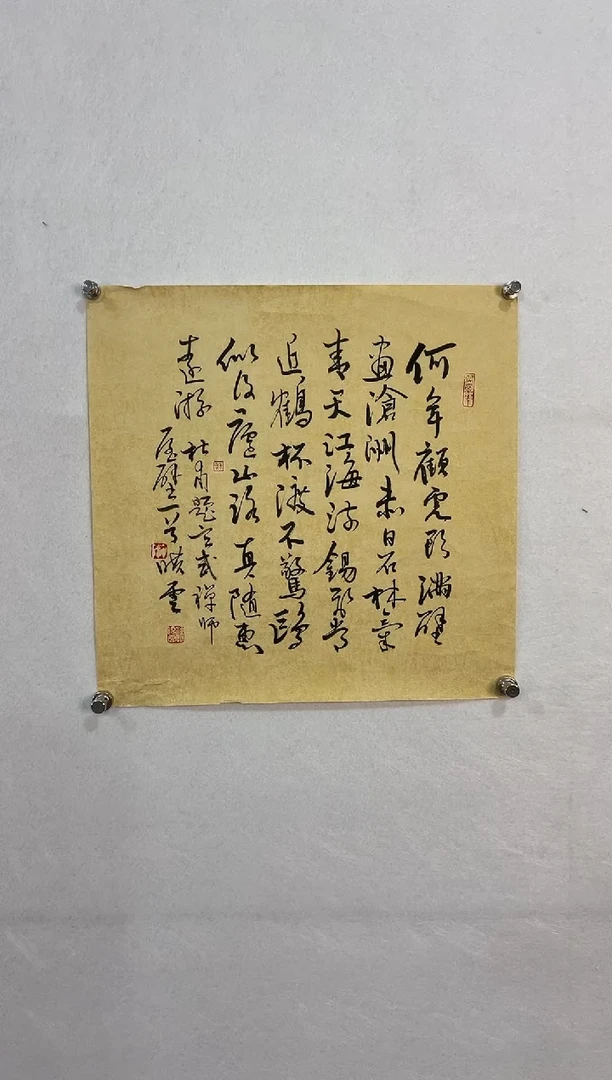 何年顧虎頭滿壁
畫滄洲赤日石林氣
青天江海流錫飛常
近鶴杯渡不驚鷗
似得廬山路真隨惠
遠游 杜甫題玄武禪師
屋壁一首 暎雲